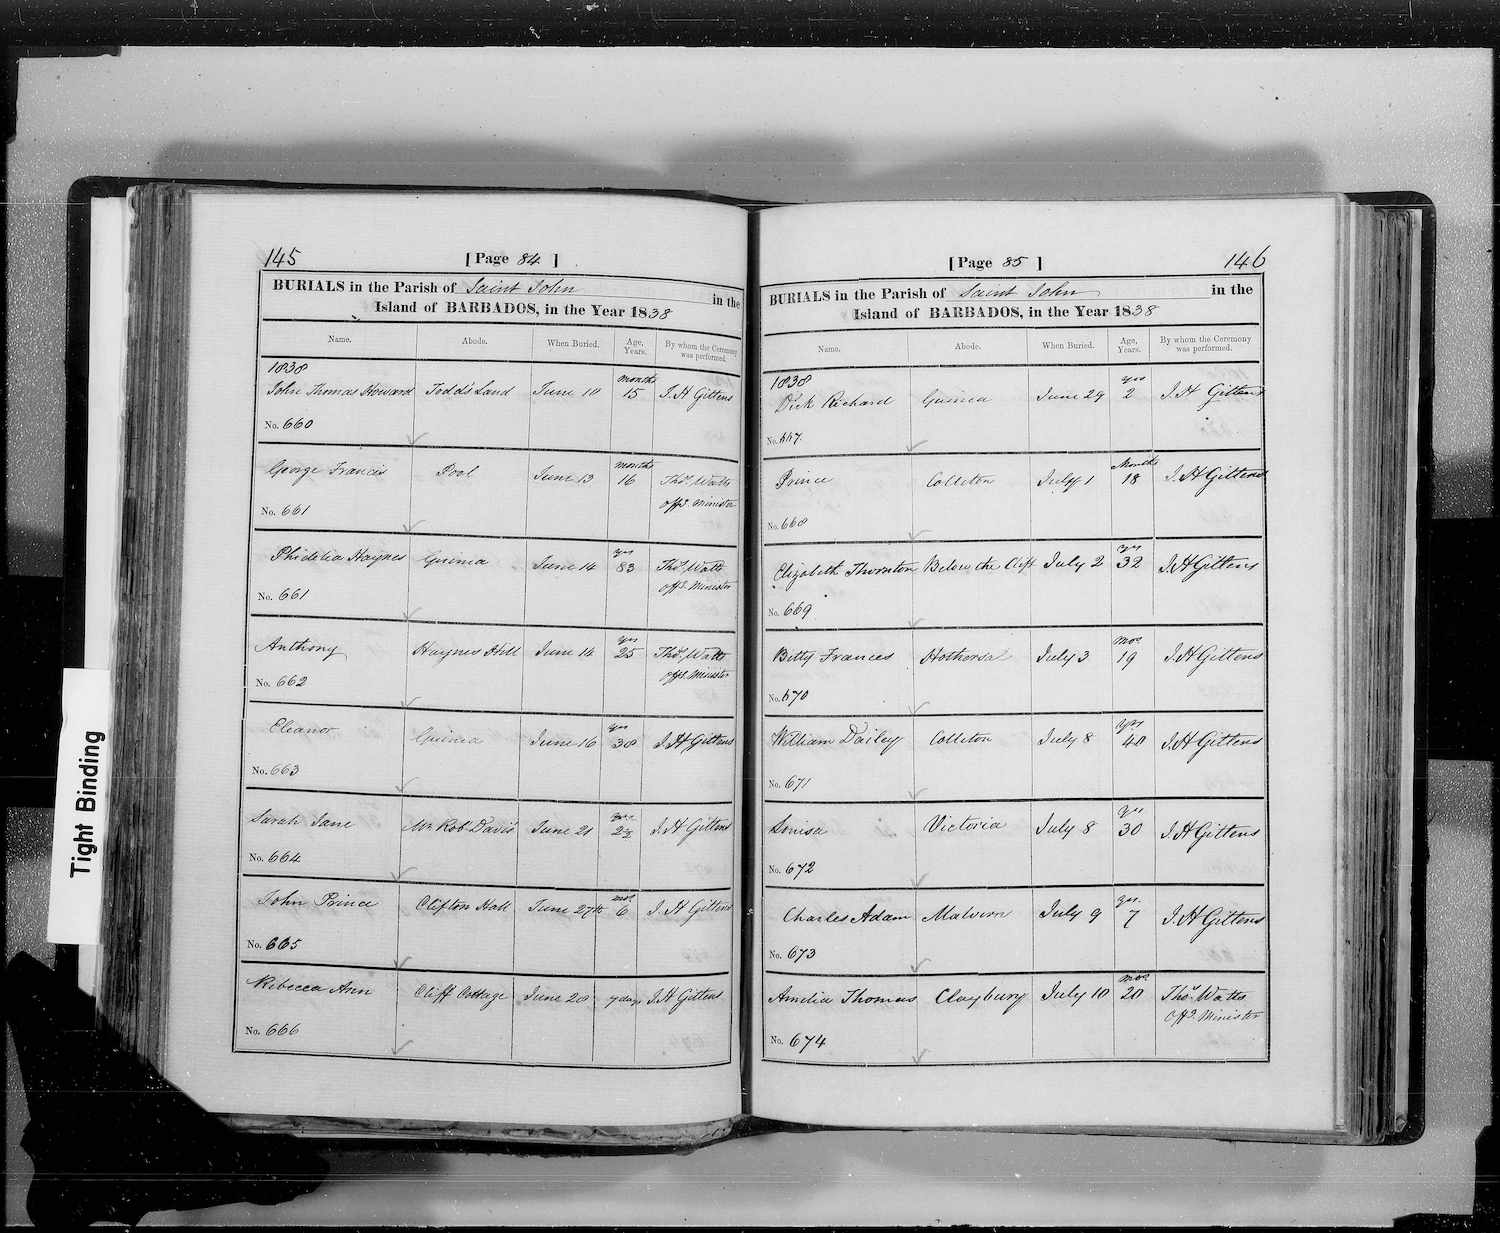 Tight Binding
145 [ Page 84 ]
BURIALS in the Parish of Saint John in the
Island of BARBADOS, in the Year 1838
Name. Abode. When Buried. Age, Years. By whom the Ceremony was performed.
1838
John Thomas Howard Todds Land June 10 months 15 J. H Gittens
No. 660
George Francis Pool June 13 months 16 Thos. Watts
Offg. Minister
No. 661
Phidelia Haynes Guinea June 14 yrs 83 Thos. Watts
Offg. Minister
No. 661
Anthony Haynes Hill June 14 yrs 25 Thos. Watts
Offg. Minister
No. 662
Eleanor Guinea June 16 yrs 38 J. H Gittens
No. 663
Sarah Jane Mr Robt Davis June 21 yrs 2½ J. H Gittens
No. 664
John Prince Clifton Hall June 27th mos 6 J. H Gittens
No. 665
Rebecca Ann Cliff Cottage June 28 7 days J. H Gittens
No. 666
[ Page 85 ] 146
BURIALS in the Parish of Saint John in the
Island of BARBADOS, in the Year 1838
Name. Abode. When Buried. Age, Years. By whom the Ceremony was performed.
1838
Dick Richard Guinea June 29 yrs 2 J. H Gittens
No. 667.
Prince Colleton July 1 Months 18 J. H Gittens
No. 668
Elizabeth Thornton Below the Cliff July 2 yrs 32 J. H Gittens
No. 669
Betty Frances Hothersal July 3 mos 19 J. H Gittens
No. 670
William Dailey Colleton July 8 Yrs 40 J. H Gittens
No. 671
Louisa Victoria July 8 Yrs 30 J. H Gittens
No. 672
Charles Adam Malvern July 9 yrs. 7 J. H Gittens
No. 673
Amelia Thomas Claybury July 10 mos 20 Thos. Watts
Offg. Minister
No. 674